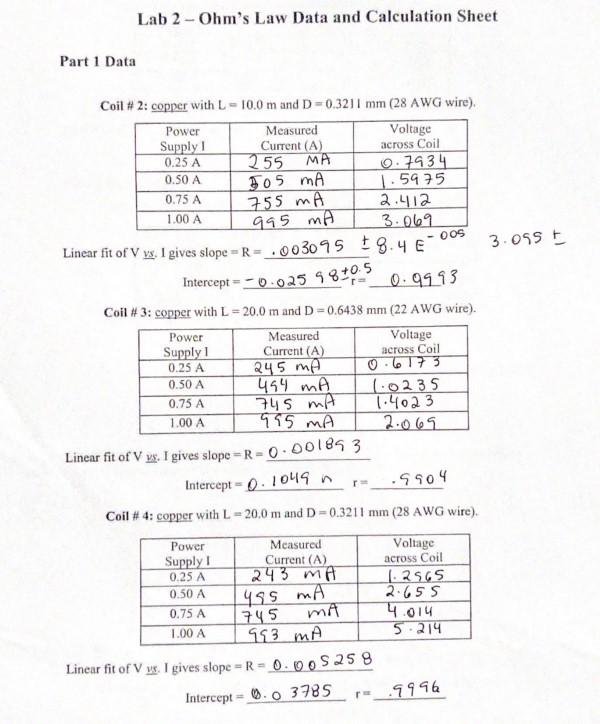 Lab 2 – Ohm's Law Data and Calculation Sheet
Part 1 Data
Coil # 2: copper with L = 10.0 m and D = 0.3211 mm (28 AWG wire).
Power Supply I Measured Current (A) Voltage across Coil
0.25 A 255 MA 0.7934
0.50 A 505 mA 1.5975
0.75 A 755 mA 2.412
1.00 A 995 mA 3.069
Linear fit of V vs. I gives slope = R = .003095 ± 8.4 E-005 3.095 ±
Intercept = -0.02598 ±0.5 r = 0.9993
Coil # 3: copper with L = 20.0 m and D = 0.6438 mm (22 AWG wire).
Power Supply I Measured Current (A) Voltage across Coil
0.25 A 245 mA 0.6173
0.50 A 494 mA 1.0235
0.75 A 745 mA 1.4023
1.00 A 995 mA 2.069
Linear fit of V vs. I gives slope = R = 0.001893
Intercept = 0.1049 r = .9904
Coil # 4: copper with L = 20.0 m and D = 0.3211 mm (28 AWG wire).
Power Supply I Measured Current (A) Voltage across Coil
0.25 A 243 mA 1.2965
0.50 A 495 mA 2.655
0.75 A 745 mA 4.014
1.00 A 993 mA 5.214
Linear fit of V vs. I gives slope = R = 0.005258
Intercept = 0.03785 r = .9996